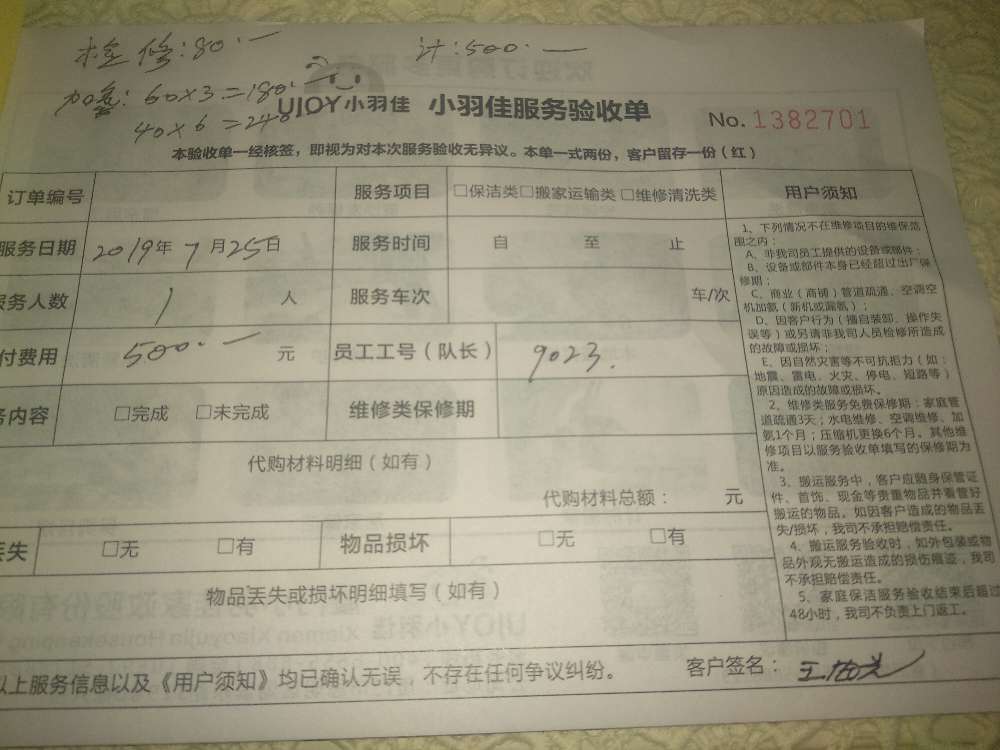 检修:80.一 计:500.一
加氨:60×3=180.
40×6=240
UJOY小羽佳 小羽佳服务验收单 No.1382701
本验收单一经核签，即视为对本次服务验收无异议。本单一式两份，客户留存一份（红）
订单编号 服务项目 □保洁类□搬家运输类□维修清洗类 用户须知
服务日期 2019年7月25日 服务时间 自 至 止
服务人数 1 人 服务车次 车/次
付费用 500.一 元 员工工号（队长） 9023.
务内容 □完成 □未完成 维修类保修期
代购材料明细（如有）
代购材料总额： 元
丢失 □无 □有 物品损坏 □无 □有
物品丢失或损坏明细填写（如有）
1、下列情况不在维修项目的维保范
围之内：
A、非我司员工提供的设备或部件；
B、设备或部件本身已经超过出厂保
修期；
C、商业（商铺）管道疏通、空调空
机加氨（新机或漏氨）；
D、因客户行为（擅自装卸、操作失
误等）或另请非我司人员检修所造成
的故障或损坏；
E、因自然灾害等不可抗拒力（如：
地震、雷电、火灾、停电、短路等）
原因造成的故障或损坏。
2、维修类服务免费保修期：家庭管
道疏通3天；水电维修、空调维修、加
氨1个月；压缩机更换6个月。其他维
修项目以服务验收单填写的保修期为
准。
3、搬运服务中，客户应随身保管证
件、首饰、现金等贵重物品并看管好
搬运的物品。如因客户造成的物品丢
失/损坏，我司不承担赔偿责任。
4、搬运服务验收时，如外包装或物
品外观无搬运造成的损伤痕迹，我司
不承担赔偿责任。
5、家庭保洁服务验收结束后超过
48小时，我司不负责上门返工。
以上服务信息以及《用户须知》均已确认无误，不存在任何争议纠纷。 客户签名：